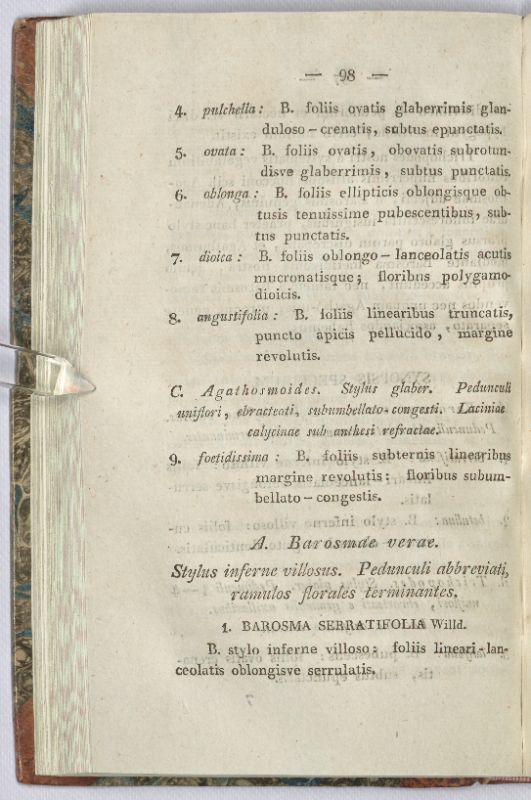 — 98 —
4. pulchella: B. foliis ovatis glaberrimis glan-
duloso – crenatis, subtus epunctatis.
5. ovata: B. foliis ovatis, obovatis subrotun-
disve glaberrimis, subtus punctatis.
6. oblonga: B. foliis ellipticis oblongisque ob-
tusis tenuissime pubescentibus, sub-
tus punctatis.
7. dioica: B. foliis oblongo – lanceolatis acutis
mucronatisque; floribus polygamo-
dioicis.
8. angustifolia: B. foliis linearibus truncatis,
puncto apicis pellucido, margine
revolutis.
C. Agathosmoides. Stylus glaber. Pedunculi
uniflori, ebracteati, subumbellato-congesti. Laciniae
calycinae sub anthesi refractae.
9. foetidissima: B. foliis subternis linearibus
margine revolutis: floribus subum-
bellato – congestis.
A. Barosmae verae.
Stylus inferne villosus. Pedunculi abbreviati,
ramulos florales terminantes.
1. BAROSMA SERRATIFOLIA Willd.
B. stylo inferne villoso: foliis lineari-lan-
ceolatis oblongisve serrulatis.